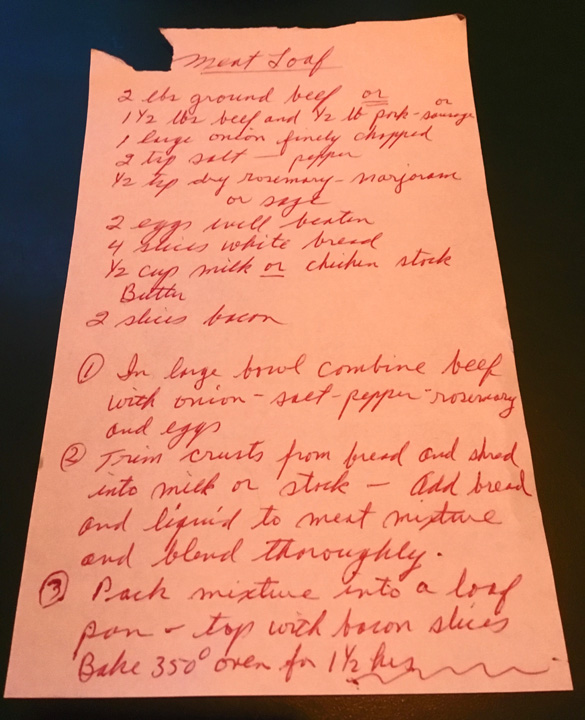 Meat Loaf
2 lbs ground beef or
1 1/2 lbs beef and 1/2 lb pork - or sausage
1 large onion finely chopped
2 tsp salt — pepper
1/2 tsp dry rosemary - marjoram
or sage
2 eggs well beaten
4 slices white bread
1/2 cup milk or chicken stock
Butter
2 slices bacon
① In large bowl combine beef
with onion - salt - pepper - rosemary
and eggs
② Trim crusts from bread and shred
into milk or stock — Add bread
and liquid to meat mixture
and blend thoroughly.
③ Pack mixture into a loaf
pan - top with bacon slices
Bake 350° oven for 1 1/2 hrs